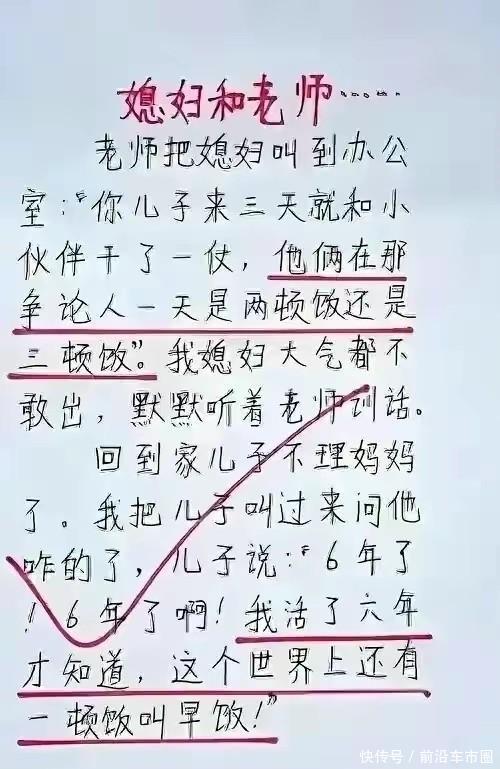 媳妇和老师……
老师把媳妇叫到办公
室:“你儿子来三天就和小
伙伴干了一仗,他俩在那
争论人一天是两顿饭还是
三顿饭”。我媳妇大气都不
敢出,默默听着老师训话。
回到家儿子不理妈妈
了。我把儿子叫过来问他
咋的了,儿子说:“6年了
!6年了啊!我活了六年
才知道,这个世界上还有
一顿饭叫早饭!”
快传号/前沿车市圈